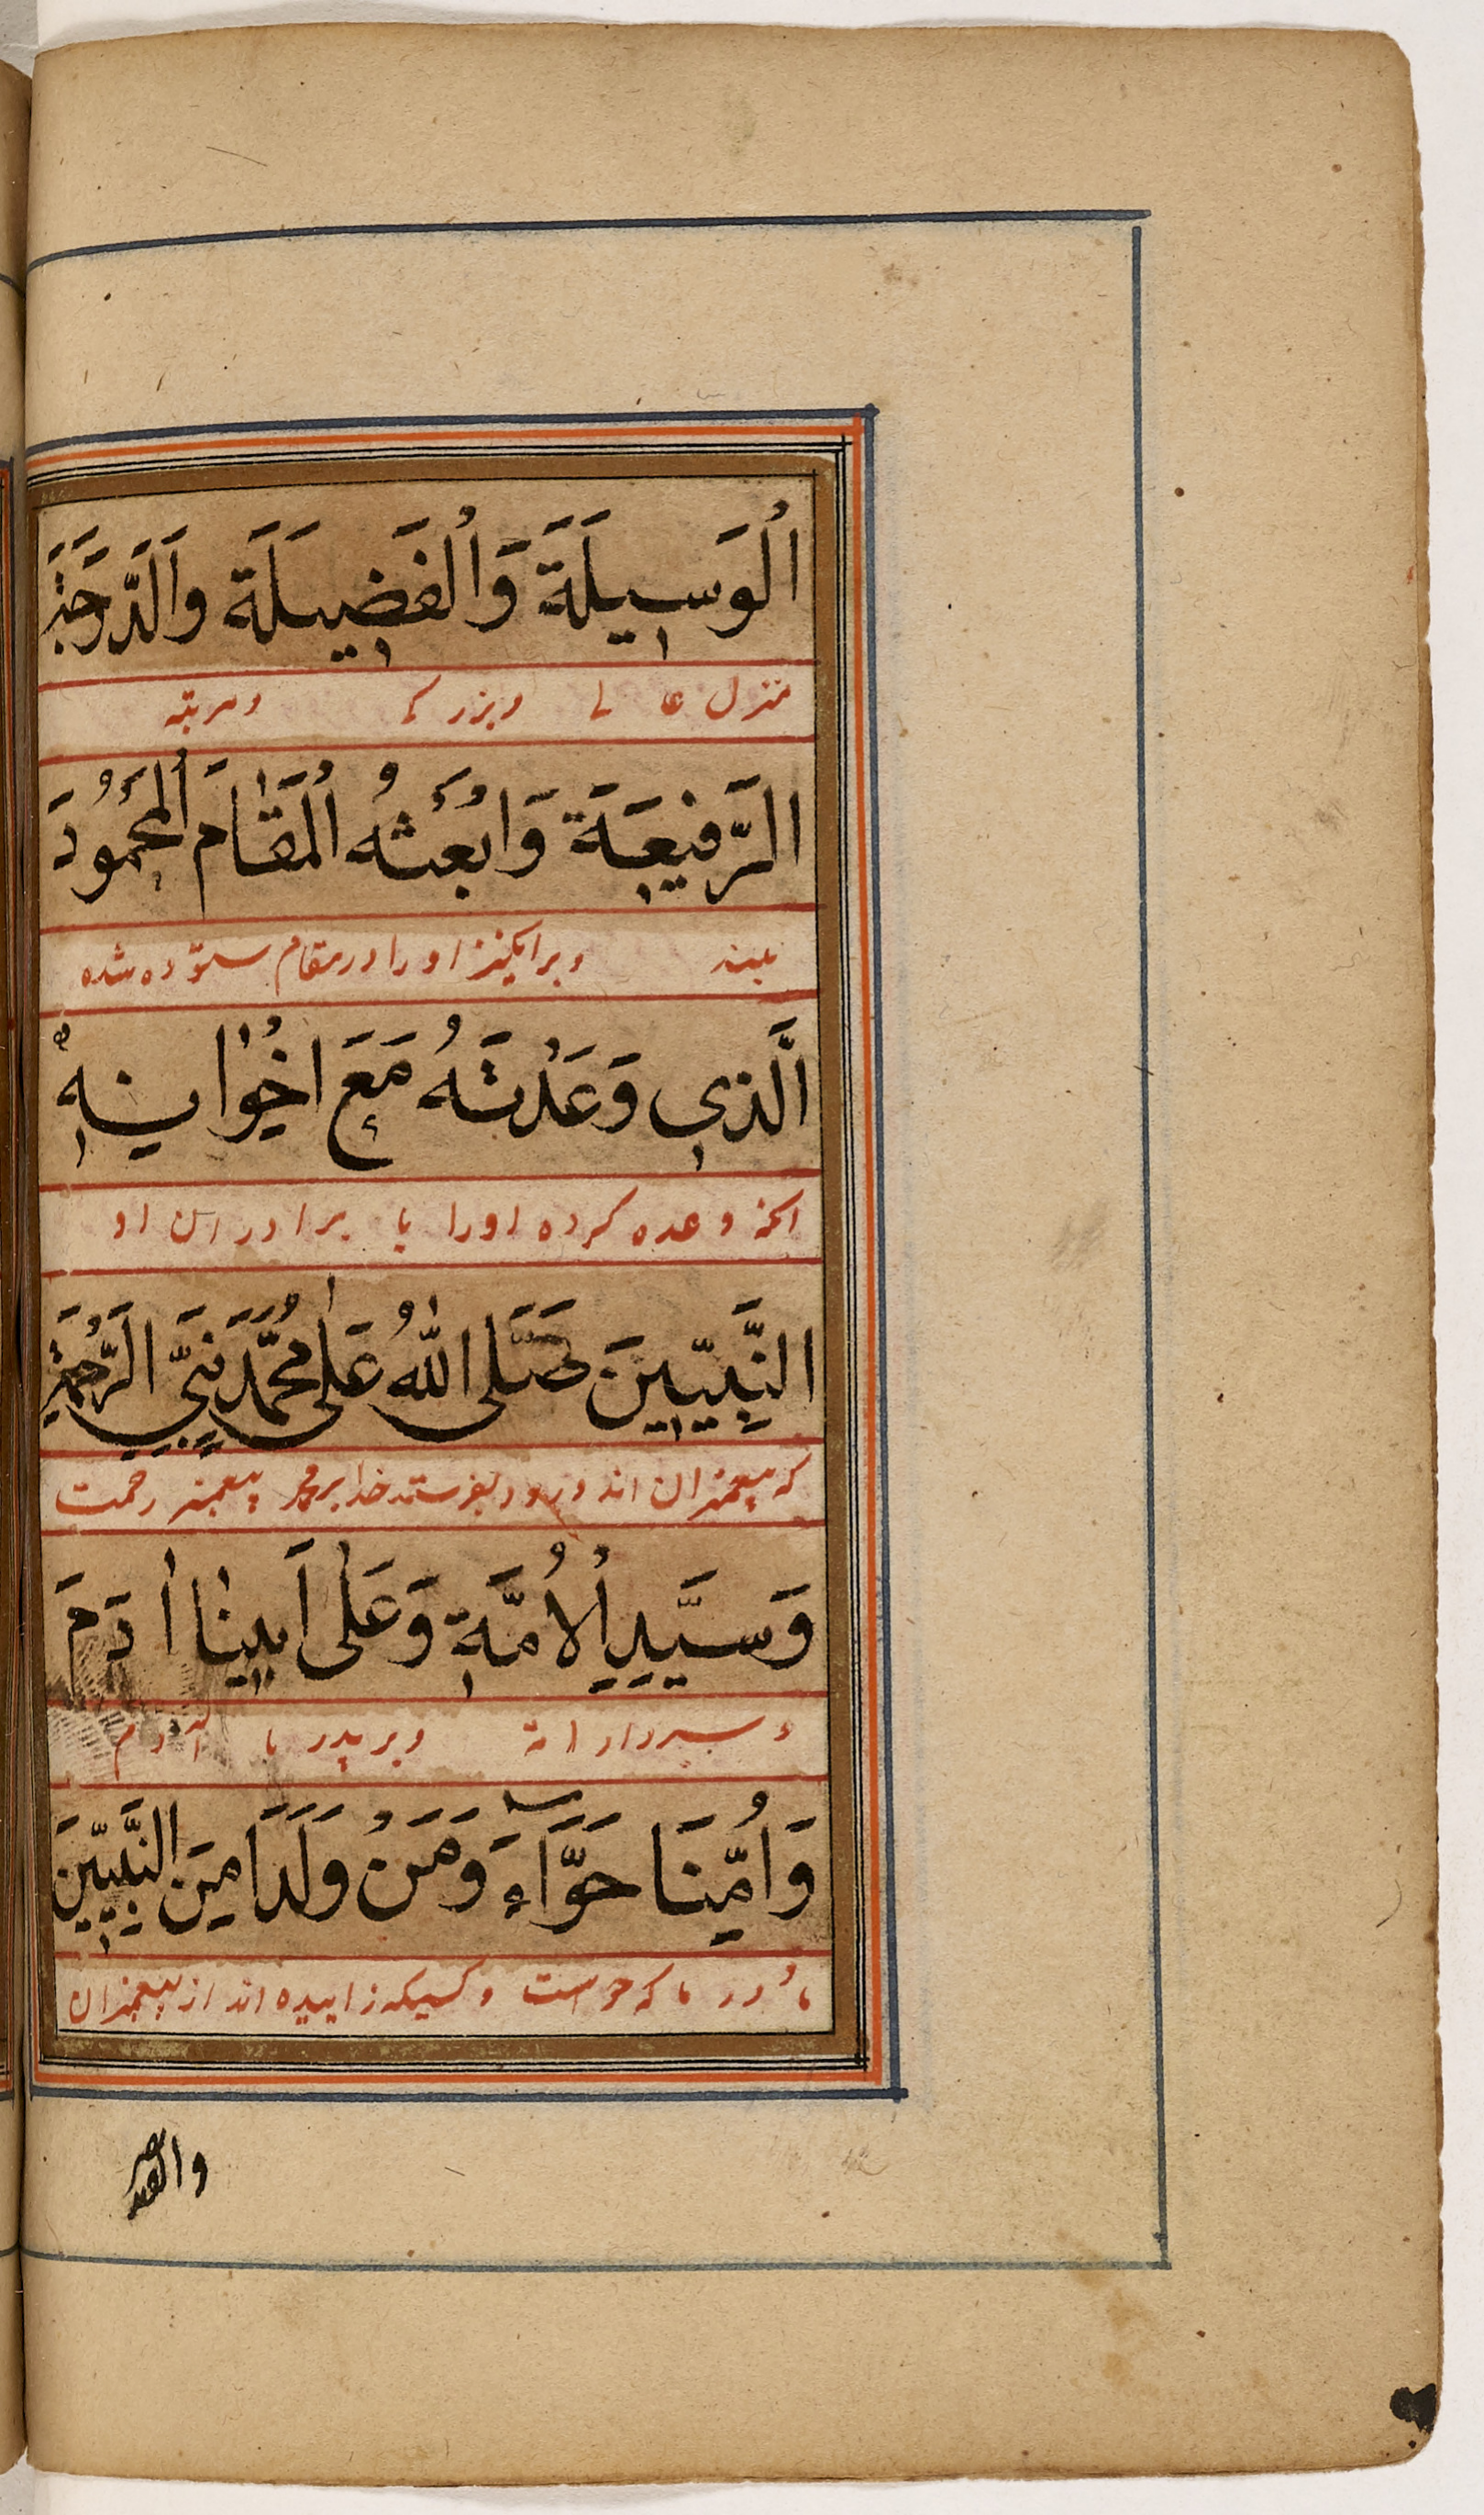 اَلْوَسِيلَةَ وَالْفَضِيلَةَ وَالَدَّرَجَةَ
منزل عا لے وبزر کے ومرتبه
الرَّفِيعَةَ وَابْعَثْهُ الْمَقٰامَ الْمَحْمُودَ
بلند وبرانکیز اورا درمقام ستوده شده
الَّذِي وَعَدْتَهُ مَعَ اِخْوٰانِهِ
انکه وعده کرده اورا با برادران او
النَّبِيّينَ صَلَّى اللّٰهُ عَلٰى مُحَمَّدٍ نَبِيِّ الرَّحْمَةِ
که پیغمبران اند ودرود بفرستد خدا بر محمد پیغمبر رحمت
وَسَيِّدِ الْاُمَّةِ وَعَلٰى اَبِينٰا اٰدَمَ
وسردار امة وبر پدر ما آدم
وَاُمِّنَا حَوَّاءَ وَمَنْ وَلَدَا مِنَ النَّبِيّينَ
مادر ما که حواست وکسیکه زاییده اند از پیغمبران